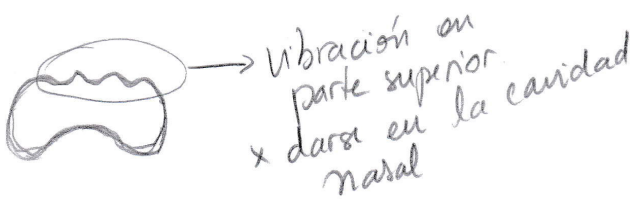 vibración en
parte superior
x darse en la cavidad
nasal